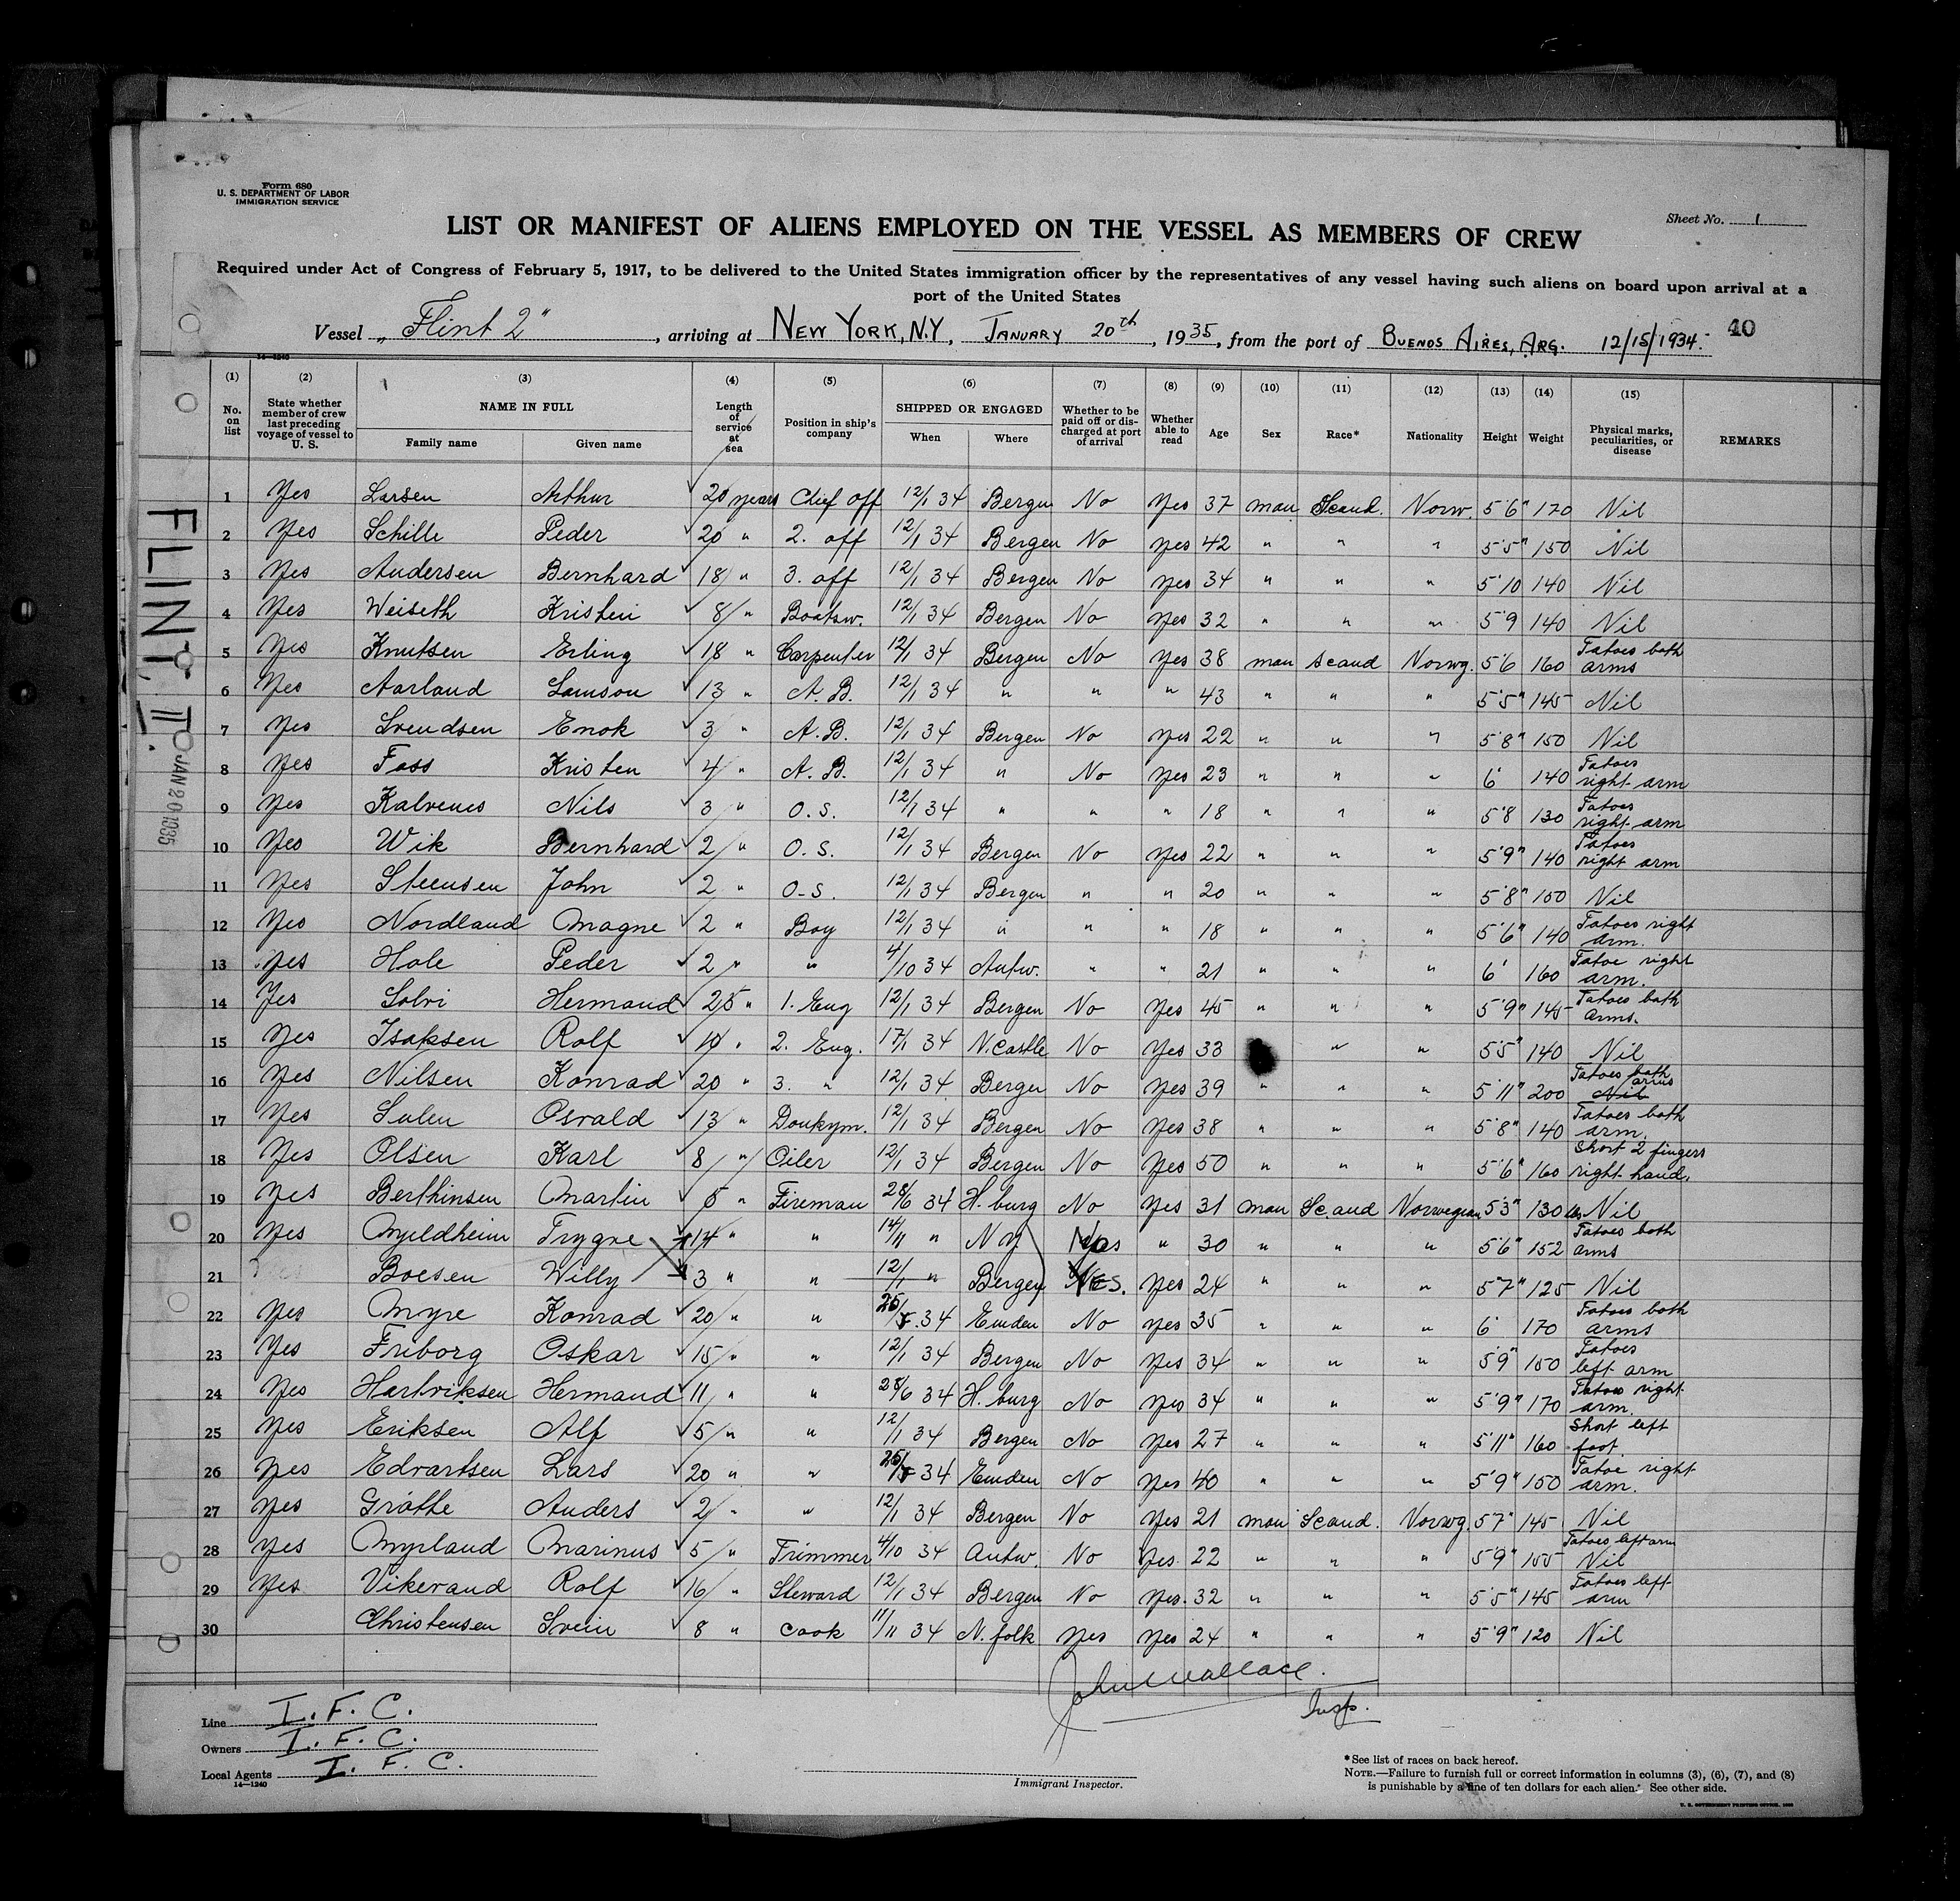 Form 680
U. S. DEPARTMENT OF LABOR
IMMIGRATION SERVICE
Sheet No. 1
LIST OR MANIFEST OF ALIENS EMPLOYED ON THE VESSEL AS MEMBERS OF CREW
Required under Act of Congress of February 5, 1917, to be delivered to the United States immigration officer by the representatives of any vessel having such aliens on board upon arrival at a
port of the United States
Vessel „Flint 2", arriving at NEW YORK, N.Y, JANUARY 20th, 1935, from the port of BUENOS AIRES, ARG. 12/15/1934. 40
14—1240
(1) (2) (3) (4) (5) (6) (7) (8) (9) (10) (11) (12) (13) (14) (15)
No. on list State whether member of crew last preceding voyage of vessel to U. S. NAME IN FULL Family name Given name Length of service at sea Position in ship's company SHIPPED OR ENGAGED When Where Whether to be paid off or discharged at port of arrival Whether able to read Age Sex Race* Nationality Height Weight Physical marks, peculiarities, or disease REMARKS
1 Yes Larsen Arthur 20 years Chief off 12/1 34 Bergen No Yes 37 man Scand. Norw. 5'6" 170 Nil
2 Yes Schille Peder 20 " 2. off 12/1 34 Bergen No Yes 42 " " " 5'5" 150 Nil
3 Yes Andersen Bernhard 18 " 3. off 12/1 34 Bergen No Yes 34 " " " 5'10 140 Nil
4 Yes Weiseth Kristen 8 " Boatsw. 12/1 34 Bergen No Yes 32 " " " 5'9 140 Nil
5 Yes Knutsen Erling 18 " Carpenter 12/1 34 Bergen No Yes 38 man Scand Norwg. 5'6 160 Tatoes both arms
6 Yes Aarland Samson 13 " A.B. 12/1 34 " " " 43 " " " 5'5" 145 Nil
7 Yes Svendsen Enok 3 " A.B. 12/1 34 Bergen No Yes 22 " " " 5'8" 150 Nil
8 Yes Foss Kristen 4 " A.B. 12/1 34 " No Yes 23 " " " 6' 140 Tatoes right arm
9 Yes Kalvenes Nils 3 " O.S. 12/1 34 " " " 18 " " " 5'8 130 Tatoes right arm
10 Yes Wik Bernhard 2 " O.S. 12/1 34 Bergen No Yes 22 " " " 5'9" 140 Tatoes right arm
11 Yes Steensen John 2 " O-S. 12/1 34 Bergen " " 20 " " " 5'8" 150 Nil
12 Yes Nordland Magne 2 " Boy 12/1 34 " " " 18 " " " 5'6" 140 Tatoes right arm.
13 Yes Hole Peder 2 " " 4/10 34 Antw. " " 21 " " " 6' 160 Tatoe right arm.
14 Yes Solvi Hermand 25 " 1. Eng 12/1 34 Bergen No Yes 45 " " " 5'9" 145 Tatoes both arms.
15 Yes Isaksen Rolf 10 " 2. Eng. 17/1 34 N.castle No Yes 33 " " 5'5" 140 Nil
16 Yes Nilsen Konrad 20 " 3. " 12/1 34 Bergen No Yes 39 " " " 5'11" 200 Tatoes both arms Nil
17 Yes Sulen Osvald 13 " Donkym. 12/1 34 Bergen No Yes 38 " " " 5'8" 140 Tatoes both arm.
18 Yes Olsen Karl 8 " Oiler 12/1 34 Bergen No Yes 50 " " " 5'6" 160 Short 2 fingers right hand.
19 Yes Berthinsen Martin 5 " Fireman 28/6 34 H.burg No Yes 31 man Scand Norwegian 5'3" 130 lbs Nil
20 Yes Myldheim Trygve 14 " " 14/11 " N Y Yes " 30 " " " 5'6" 152 Tatoes both arms
21 Boesen Willy 3 " " 12/1 " Bergen Yes. Yes 24 " " " 5'7" 125 Nil
22 Yes Myre Konrad 20 " " 25/5. 34 Emden No Yes 35 " " " 6' 170 Tatoes both arms
23 Yes Friborg Oskar 15 " " 12/1 34 Bergen No Yes 34 " " " 5'9" 150 Tatoes left arm
24 Yes Hartviksen Hermand 11 " " 28/6 34 H.burg No Yes 34 " " " 5'9" 170 Tatoes right arm.
25 Yes Eriksen Alf 5 " " 12/1 34 Bergen No Yes 27 " " " 5'11" 160 Short left foot.
26 Yes Edvartsen Lars 20 " " 25/5 34 Emden No Yes 40 " " " 5'9" 150 Tatoe right arm.
27 Yes Grøthe Anders 2 " " 12/1 34 Bergen No Yes 21 man Scand. Norwg. 5'7" 145 Nil
28 Yes Myrland Marinus 5 " Trimmer 4/10 34 Antw. No Yes. 22 " " " 5'9" 155 Tatoes left arm Nil
29 Yes Vikerand Rolf 16 " Steward 12/1 34 Bergen No Yes. 32 " " " 5'5" 145 Tatoes left arm
30 Christensen Svein 8 " Cook 11/11 34 N.folk Yes Yes 24 " " " 5'9" 120 Nil
FLINT, II.
JAN 20 1935
John Wallace.
Insp.
Line I. F. C.
Owners I. F. C.
Local Agents I. F. C.
14—1240
Immigrant Inspector.
*See list of races on back hereof.
NOTE.—Failure to furnish full or correct information in columns (3), (6), (7), and (8)
is punishable by a fine of ten dollars for each alien. See other side.